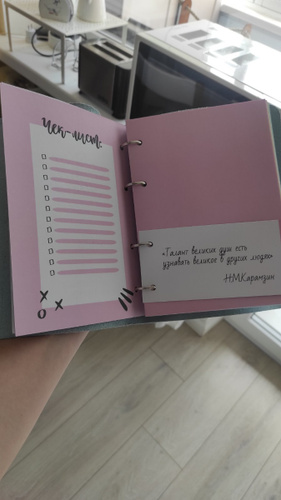 Чек-лист:
«Талант великих душ есть
узнавать великое в других людях»
Н.М.Карамзин